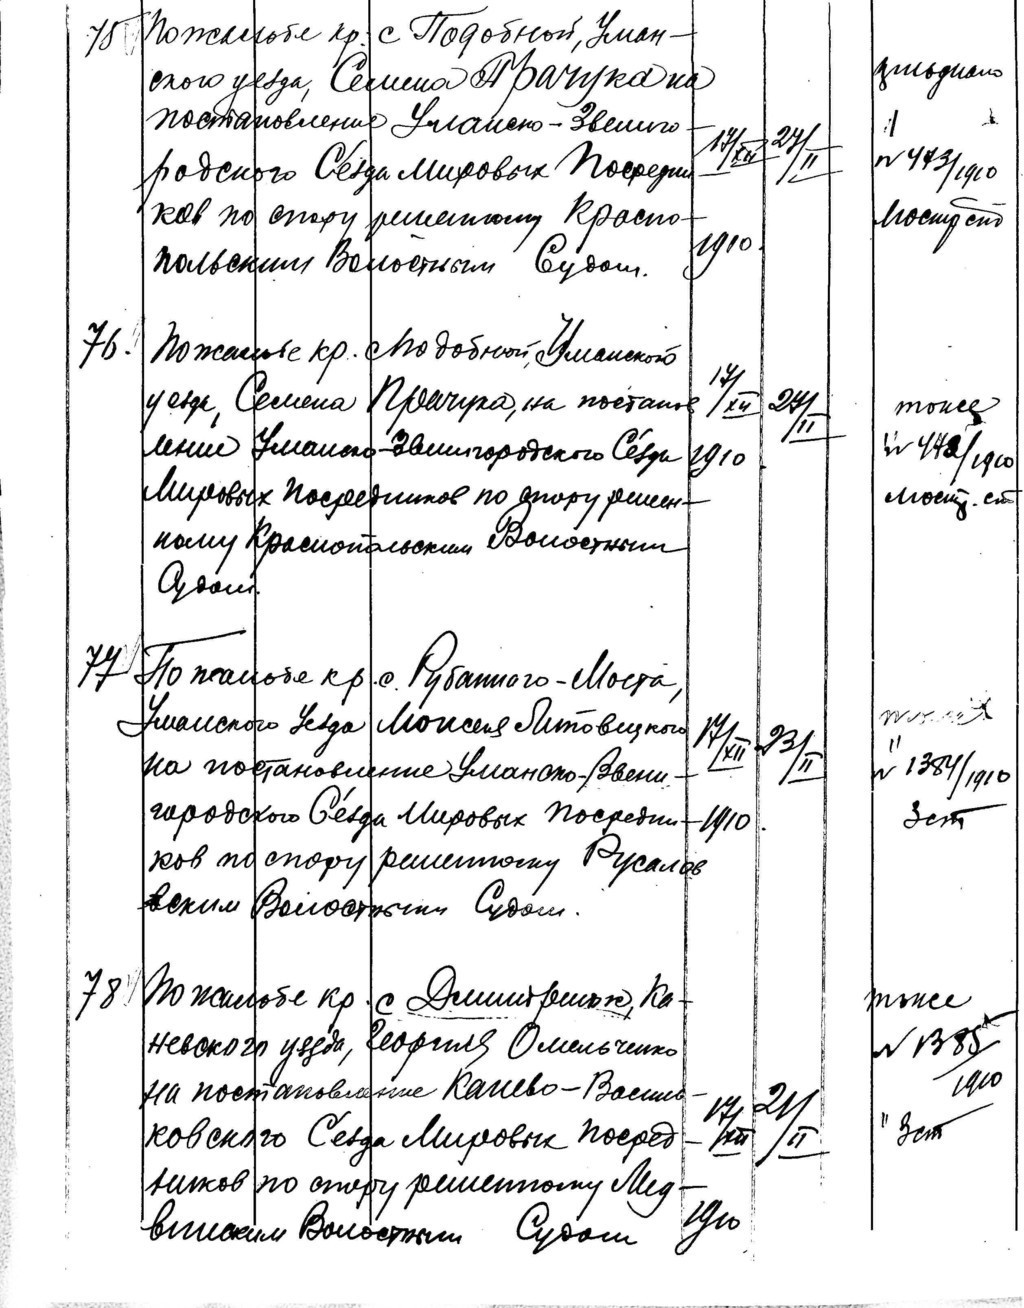 75 По жалобе кр. с Подобной, Уман-
ского уезда, Семена Прачука на
постановление Уманско-Звениго-
родского Сезда Мировых Посредни-
ков по спору решенному Красно-
польским Волостным Судом.
17/XII 1910.
27/II
№ 473/1910
76. По жалобе кр. с Подобной, Уманского
уезда, Семена Прачука, на постанов
ление Уманско-Звенигородского Сезда
Мировых Посредников по спору решен-
ному Краснопольским Волостным
Судом.
17/XII 1910.
27/II
тоже
№ 472/1910
77 По жалобе кр. с. Рубанного-Моста,
Уманского уезда Моисея Литовецкого
на постановление Уманско-Звени-
городского Сезда Мировых Посредни-
ков по спору решенному Русалов
вским Волостным Судом.
17/XII 1910.
23/II
тоже
" № 1384/1910
3 ст
78 По жалобе кр. с Дмитренок, Ка-
невского уезда, Георгия Омельченко
на постановление Канево-Василь-
ковского Сезда Мировых Посред-
ников по спору решенному Мед-
винским Волостным Судом
17/XII 1910
21/II
тоже
№ 1385/1910
" 3 ст